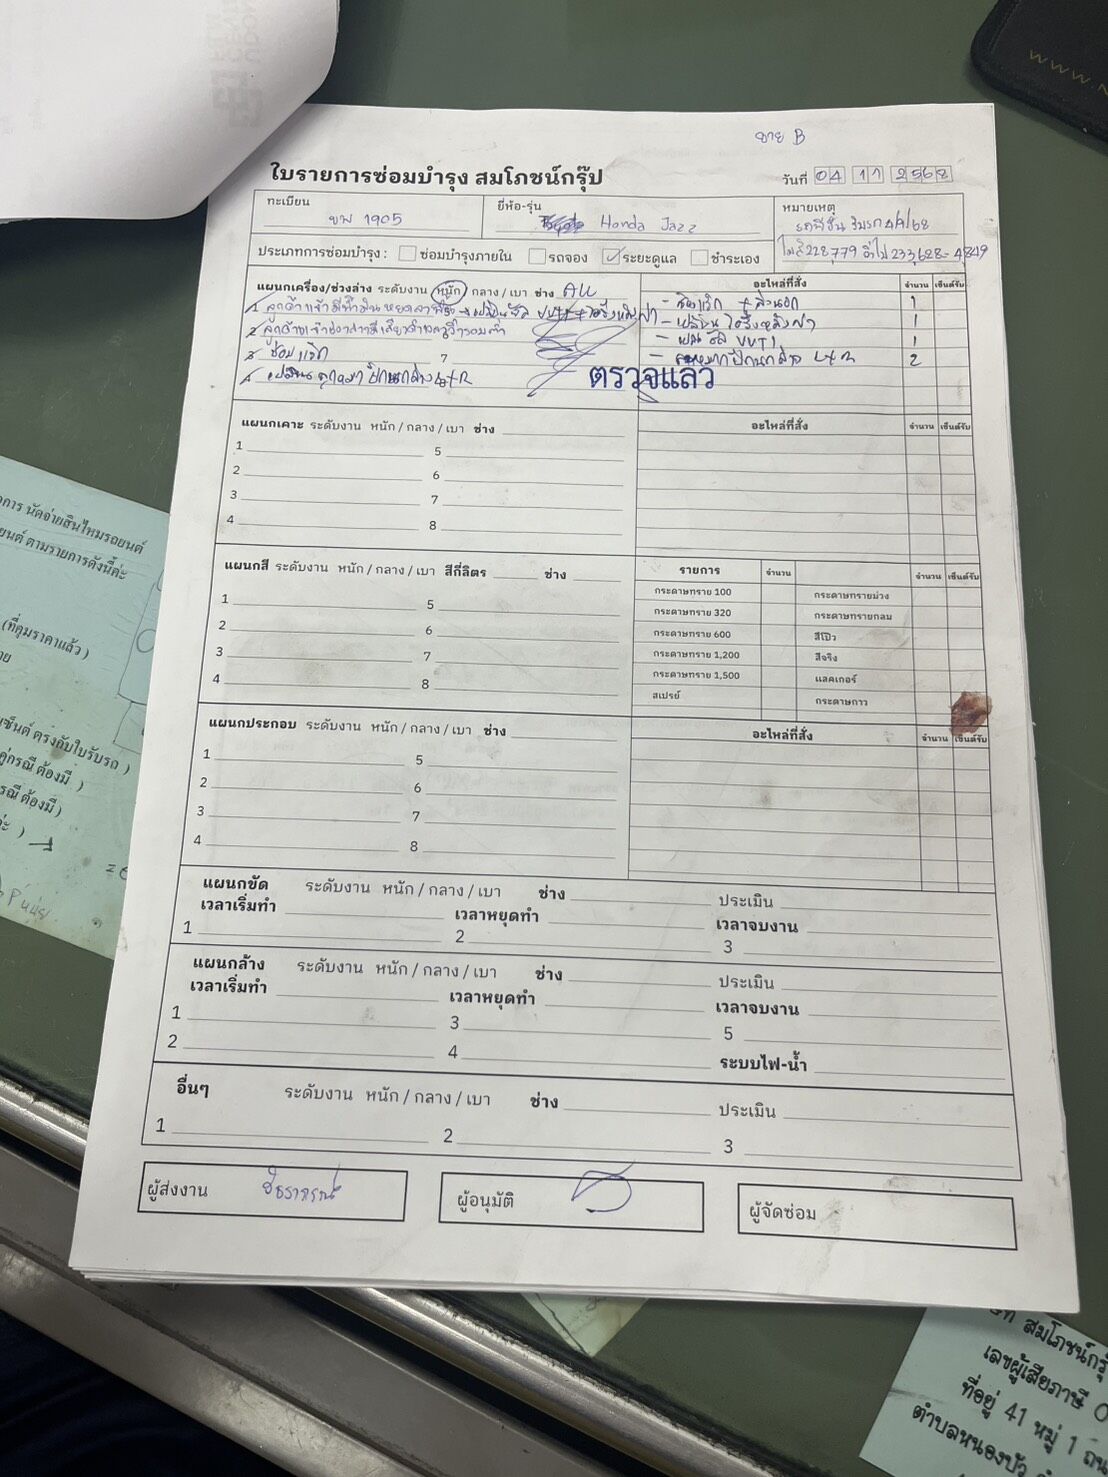 ขาย B
ใบรายการซ่อมบำรุง สมโภชน์กรุ๊ป
วันที่ 04 11 2568
ทะเบียน
ขพ 1905
ยี่ห้อ-รุ่น
Honda Jazz
หมายเหตุ
4/9/68
228,779 233,628 = 4,849
ประเภทการซ่อมบำรุง : ซ่อมบำรุงภายใน รถจอง ระยะดูแล ชำระเอง
แผนกเครื่อง/ช่วงล่าง ระดับงาน หนัก / กลาง / เบา ช่าง
อะไหล่ที่สั่ง จำนวน เซ็นต์รับ
1 ลูกค้าแจ้งมีน้ำมันหยด เปลี่ยนซีล VVTI
2 ลูกค้าแจ้ง
3 ซ่อมแร็ก 7
4 เปลี่ยนลูกหมากปีกนกล่าง L+R
1
1
เปลี่ยนซีล VVTI 1
ลูกหมากปีกนกล่าง L+R 2
ตรวจแล้ว
แผนกเคาะ ระดับงาน หนัก / กลาง / เบา ช่าง
อะไหล่ที่สั่ง จำนวน เซ็นต์รับ
1 5
2 6
3 7
4 8
แผนกสี ระดับงาน หนัก / กลาง / เบา สีกี่ลิตร ช่าง
รายการ จำนวน จำนวน เซ็นต์รับ
1 5
2 6
3 7
4 8
กระดาษทราย 100 กระดาษทรายม่วง
กระดาษทราย 320 กระดาษทรายกลม
กระดาษทราย 600 สีโป๊ว
กระดาษทราย 1,200 สีจริง
กระดาษทราย 1,500 แลคเกอร์
สเปรย์ กระดาษกาว
แผนกประกอบ ระดับงาน หนัก / กลาง / เบา ช่าง
อะไหล่ที่สั่ง จำนวน เซ็นต์รับ
1 5
2 6
3 7
4 8
แผนกขัด ระดับงาน หนัก / กลาง / เบา ช่าง ประเมิน
เวลาเริ่มทำ เวลาหยุดทำ เวลาจบงาน
1 2 3
แผนกล้าง ระดับงาน หนัก / กลาง / เบา ช่าง ประเมิน
เวลาเริ่มทำ เวลาหยุดทำ เวลาจบงาน
1 3 5
2 4 ระบบไฟ-น้ำ
อื่นๆ ระดับงาน หนัก / กลาง / เบา ช่าง ประเมิน
1 2 3
ผู้ส่งงาน
ผู้อนุมัติ
ผู้จัดซ่อม
นัดจ่ายสินไหมรถยนต์
ตามรายการดังนี้ค่ะ
(ที่คุมราคาแล้ว )
ตรงกับใบรับรถ )
คู่กรณี ต้องมี )
ต้องมี)
สมโภชน์กรุ๊
เลขผู้เสียภาษี 0
ที่อยู่ 41 หมู่ 1
ตำบลหนองบัว